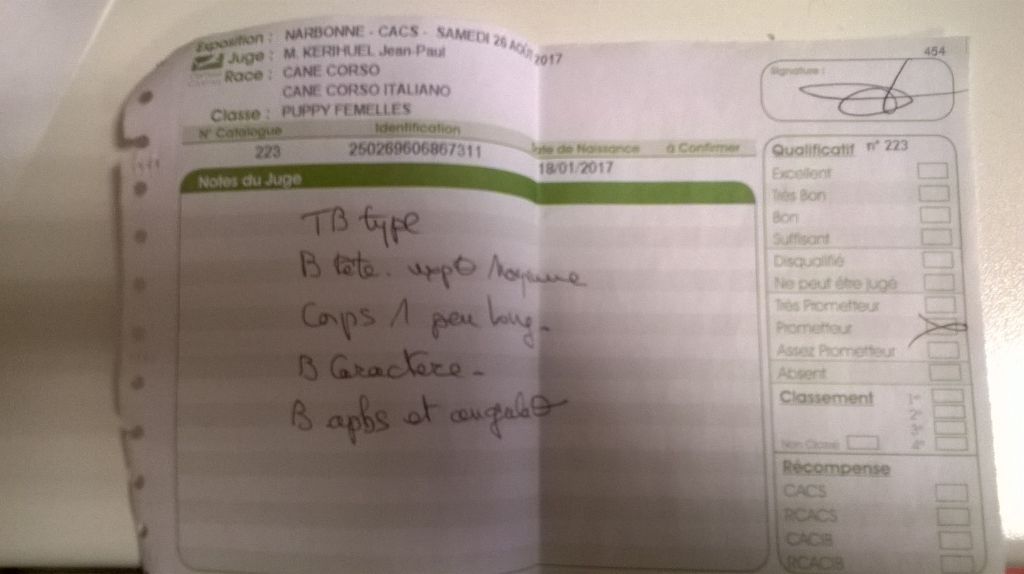 Exposition : NARBONNE - CACS - SAMEDI 26 AOÛT 2017
Juge : M. KERIHUEL Jean-Paul
Race : CANE CORSO
CANE CORSO ITALIANO
Classe : PUPPY FEMELLES
N° Catalogue Identification Date de Naissance à Confirmer
223 250269606867311 18/01/2017
Notes du Juge
TB type
B tête. Moyenne
Corps 1 peu long.
B Caractère -
B apbs et
454
Signature :
Qualificatif n° 223
Excellent
Très Bon
Bon
Suffisant
Disqualifié
Ne peut être jugé
Très Prometteur
Prometteur
Assez Prometteur
Absent
Classement 1er
2e
3e
Non Classé 4e
Récompense
CACS
RCACS
CACIB
RCACIB